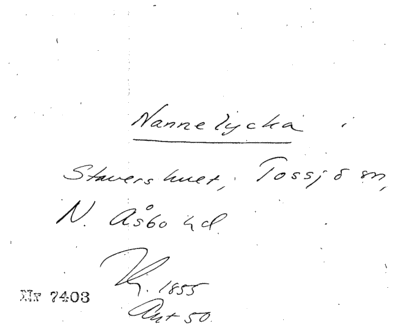 Nannelycka i
Stavershult, Tossjö sn,
N. Åsbo hd.
Hg. 1855
Ant 50.
Nr 7403